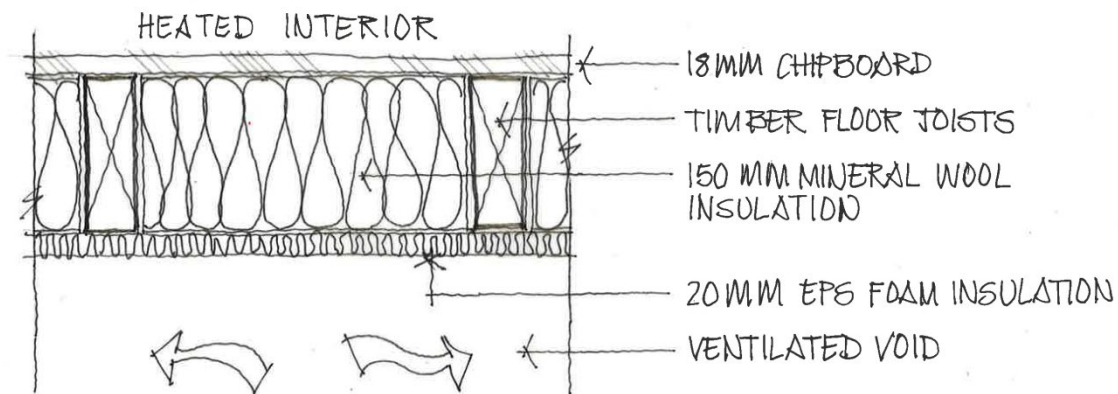 HEATED INTERIOR
18MM CHIPBOARD
TIMBER FLOOR JOISTS
150 MM MINERAL WOOL
INSULATION
20MM EPS FOAM INSULATION
VENTILATED VOID